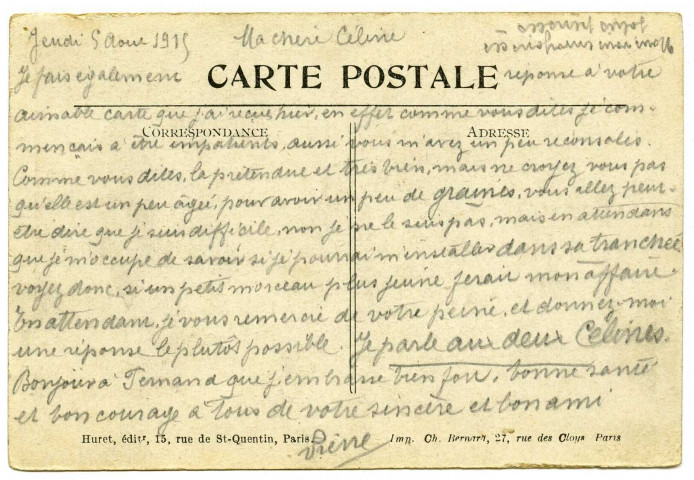 Jeudi 5 Aout 1915 Ma chère Céline
CARTE POSTALE
Je fais également réponse à votre
aimable carte que j'ai reçue hier, en effet comme vous dites je com-
CORRESPONDANCE ADRESSE
mençais à être impatients, aussi vous m'avez un peu reconsolés.
Comme vous dites, la prétendue et très bien, mais ne croyez vous pas
qu'elle est un peu âgée, pour avoir un peu de graines, vous allez peut-
être dire que je suis difficile, non je ne le suis pas, mais en attendant
que je m'occupe de savoir si je pourrai m'installer dans sa tranchée
voyez donc, si un petit morceau plus jeune ferait mon affaire.
En attendant, je vous remercie de votre peine, et donnez-moi
une réponse le plutôt possible. Je parle aux deux Célines.
Bonjour à Fernand que j'embrasse bien fort, bonne santé
et bon courage à tous de votre sincère et bon ami
Pierre
Huret, éditr, 15, rue de St-Quentin, Paris. Imp. Ch. Bernard, 27, rue des Cloys Paris